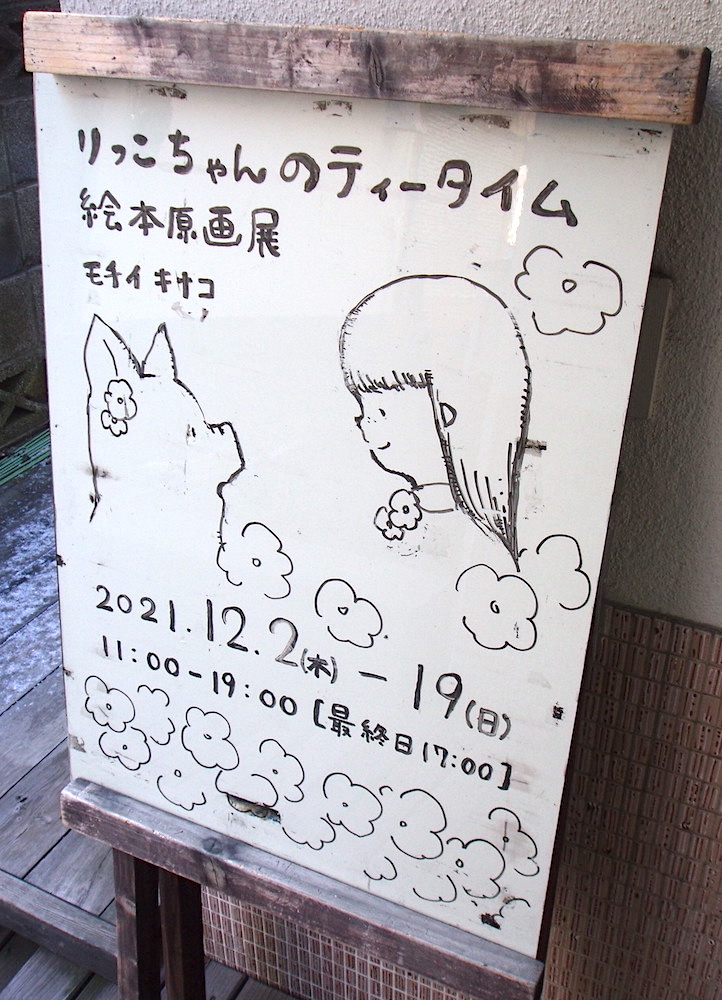 りっこちゃんのティータイム
絵本原画展
モチイ キサコ
2021. 12.2(木) – 19(日)
11:00 – 19:00 [最終日17:00]